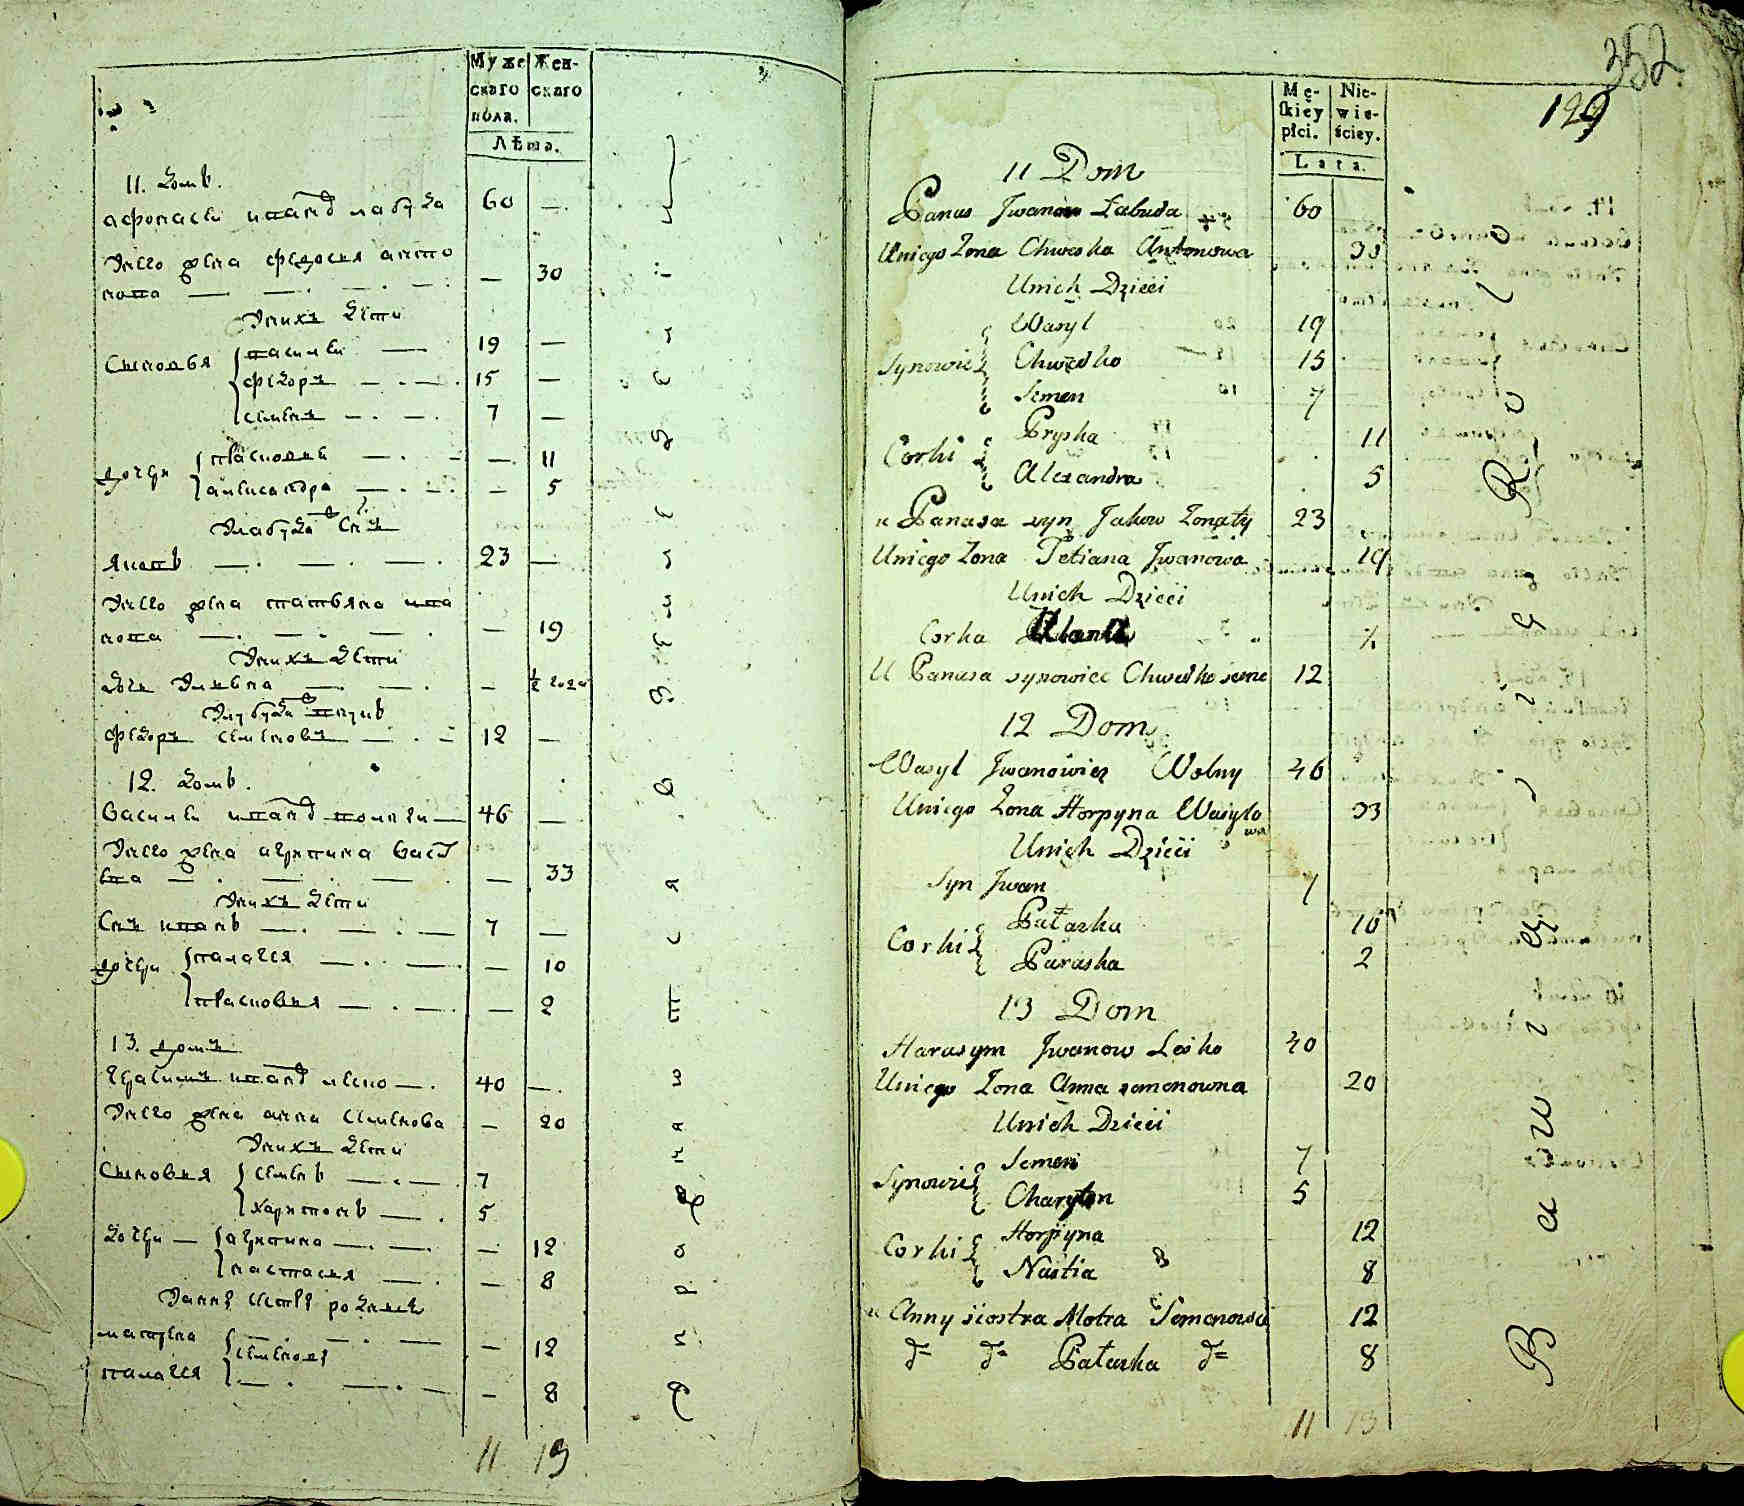 Муже
скаго
пола.
Жен-
скаго
Лѣта.
11. домъ.
афонасеи иванов лабуда 60 —
Унего жена федосия анто
нова — 30
Унихъ дети
Сыновья василеи — 19 —
федоръ — 15 —
семенъ — 7 —
дочери — 11
александра — 5
УлабудыСнъ
яковъ — 23 —
Унего жена татьяна ива
нова — 19
Унихъ дети
дочь — ½ года
федоръ семеновъ — 12 —
12. домъ.
василеи иванов — 46 —
Унего жена агрипина васил
ева — 33
Унихъ дети
Снъ иванъ — 7 —
дочери палагея — 10
прасковья — 2
13. домъ
герасимъ иванов леско — 40 —
Унего жена анна семенова — 20
Унихъ дети
Сыновья семенъ — 7
харитонъ — 5
дочери — агрипина — 12
настасья — 8
Уанны сестры родныя
матрена — 12
семеновы
палагея — 8
11 13
352.
129
Mę-
skiey
płci.
Nie-
wie-
ściey.
Lata.
11 Dom
Panas Jwanow Łabuda 60
Uniego Zona Chweska Antonowa 30
Unich Dzieci
Synowie Wasyl 19
Chwedko 15
Semen 7
Corki Pryska 11
Alexandra 5
u Panasa syn Jakow Zonaty 23
Uniego Zona Tetiana Jwanowa 19
Unich Dzieci
Corka Ulana ½
U Panasa synowiec Chwedko seme 12
12 Dom
Wasyl Jwanowicz Wolny 46
Uniego Zona Horpyna Wasylo
wa 33
Unich Dzieci
Syn Jwan 7
Corki Pałazka 10
Paraska 2
13 Dom
Harasym Jwanow Lesko 40
Uniego Zona Anna semenowna 20
Unich Dzieci
Synowie Semen 7
Charyton 5
Corki Horpyna 12
Nastia 8
u Anny siostra Motra Semenowa 12
d= d= Pałazka d= 8
11 13